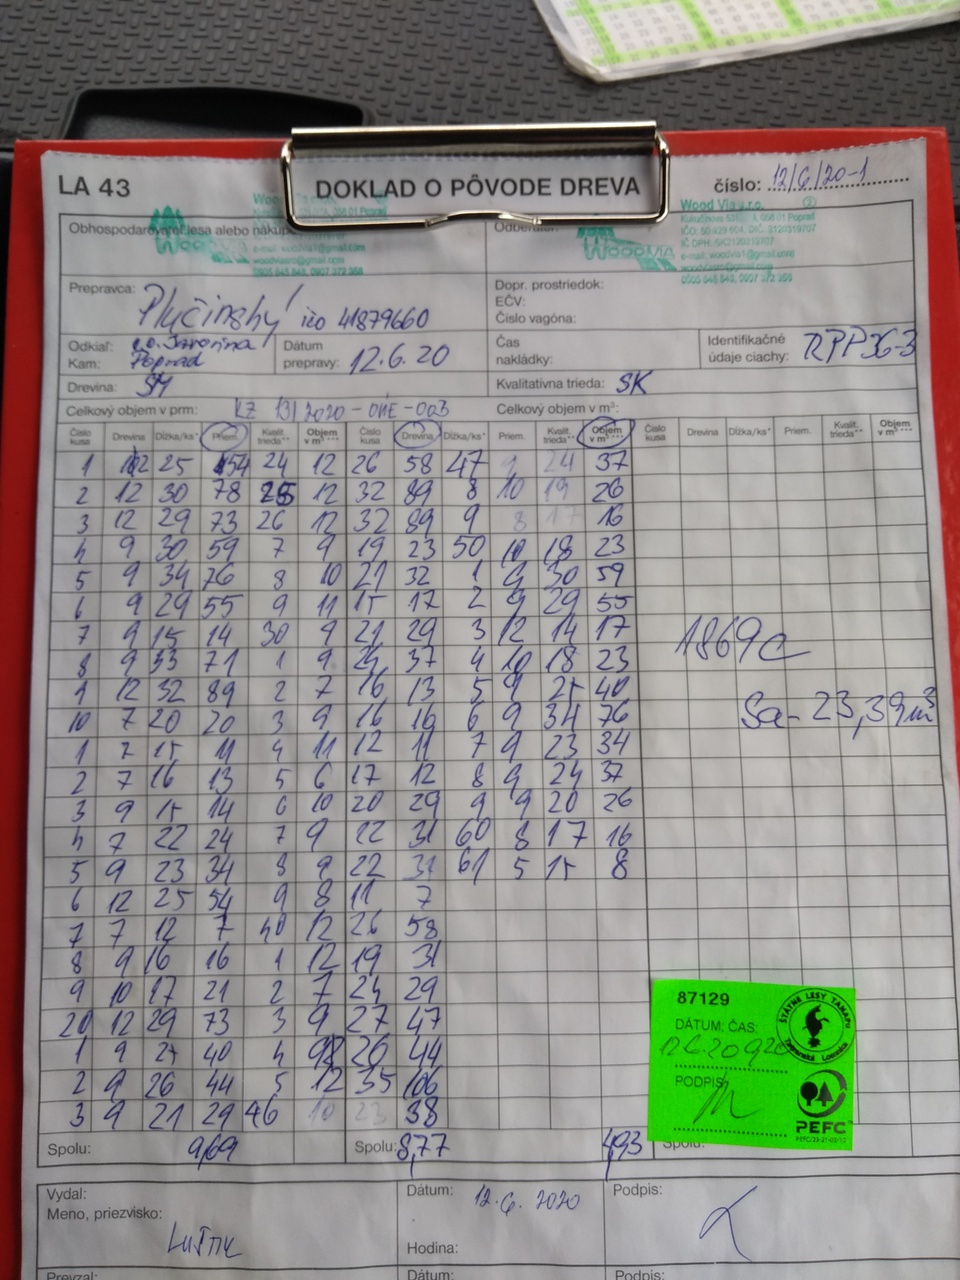 LA 43
DOKLAD O PÔVODE DREVA
číslo: 12/6/20-1
Obhospodarovateľ lesa alebo nákup
Wood
e-mail: woodvia1@gmail.com
woodviasro@gmail.com
0905 645 843, 0907 372 358
Odberateľ:
Wood Via s.r.o.
WOODVIA
IČ DPH: SK2120319707
e-mail: woodvia1@gmail.com
woodviasro@gmail.com
0905 645 843, 0907 372 358
Prepravca: Plučinský IČO 41879660
Dopr. prostriedok:
EČV:
Číslo vagóna:
Odkiaľ: Javorina
Kam: Poprad
Dátum
prepravy: 12.6.20
Čas
nakládky:
Identifikačné
údaje ciachy: RPP36-3
Drevina: SM
Kvalitatívna trieda: SK
Celkový objem v prm:
Celkový objem v m³:
Číslo kusa Drevina Dĺžka/ks* Priem. Kvalit. trieda** Objem v m³ *** Číslo kusa Drevina Dĺžka/ks* Priem. Kvalit. trieda** Objem v m³ *** Číslo kusa Drevina Dĺžka/ks* Priem. Kvalit. trieda** Objem v m³ ***
1 12 25 54 24 12 26 58 47 9 24 37
2 12 30 78 25 12 32 89 8 10 19 26
3 12 29 73 26 12 32 89 9 8 17 16
4 9 30 59 7 9 19 23 50 10 18 23
5 9 34 76 8 10 21 32 1 9 30 59
6 9 29 55 9 11 15 17 2 9 29 55
7 9 15 14 30 9 21 29 3 12 14 17
8 9 33 71 1 9 24 37 4 10 18 23
9 12 32 89 2 7 16 13 5 9 25 40
10 7 20 20 3 9 16 16 6 9 34 76
1 7 15 11 4 11 12 11 7 9 23 34
2 7 16 13 5 6 17 12 8 9 24 37
3 9 15 14 6 10 20 29 9 9 20 26
4 7 22 24 7 9 22 31 60 8 17 16
5 9 23 34 8 9 22 31 61 5 15 8
6 12 25 54 9 8 11 7
7 7 12 7 40 12 26 58
8 9 16 16 1 12 19 31
9 10 17 21 2 7 24 29
20 12 29 73 3 9 27 47
1 9 25 40 4 26 44
2 9 26 44 5 12 35 106
3 9 21 29 46 10 23 38
1869
Sa- 23,39 m³
Spolu: 9,69
Spolu: 8,77
4,93
Spolu:
87129
DÁTUM: ČAS:
12.6.20 920
PODPIS:
ŠTÁTNE LESY TANAPU
Tatranská Lomnica
PEFC
Vydal:
Meno, priezvisko:
Dátum: 12.6.2020
Hodina:
Podpis:
Prevzal:
Dátum:
Podpis: